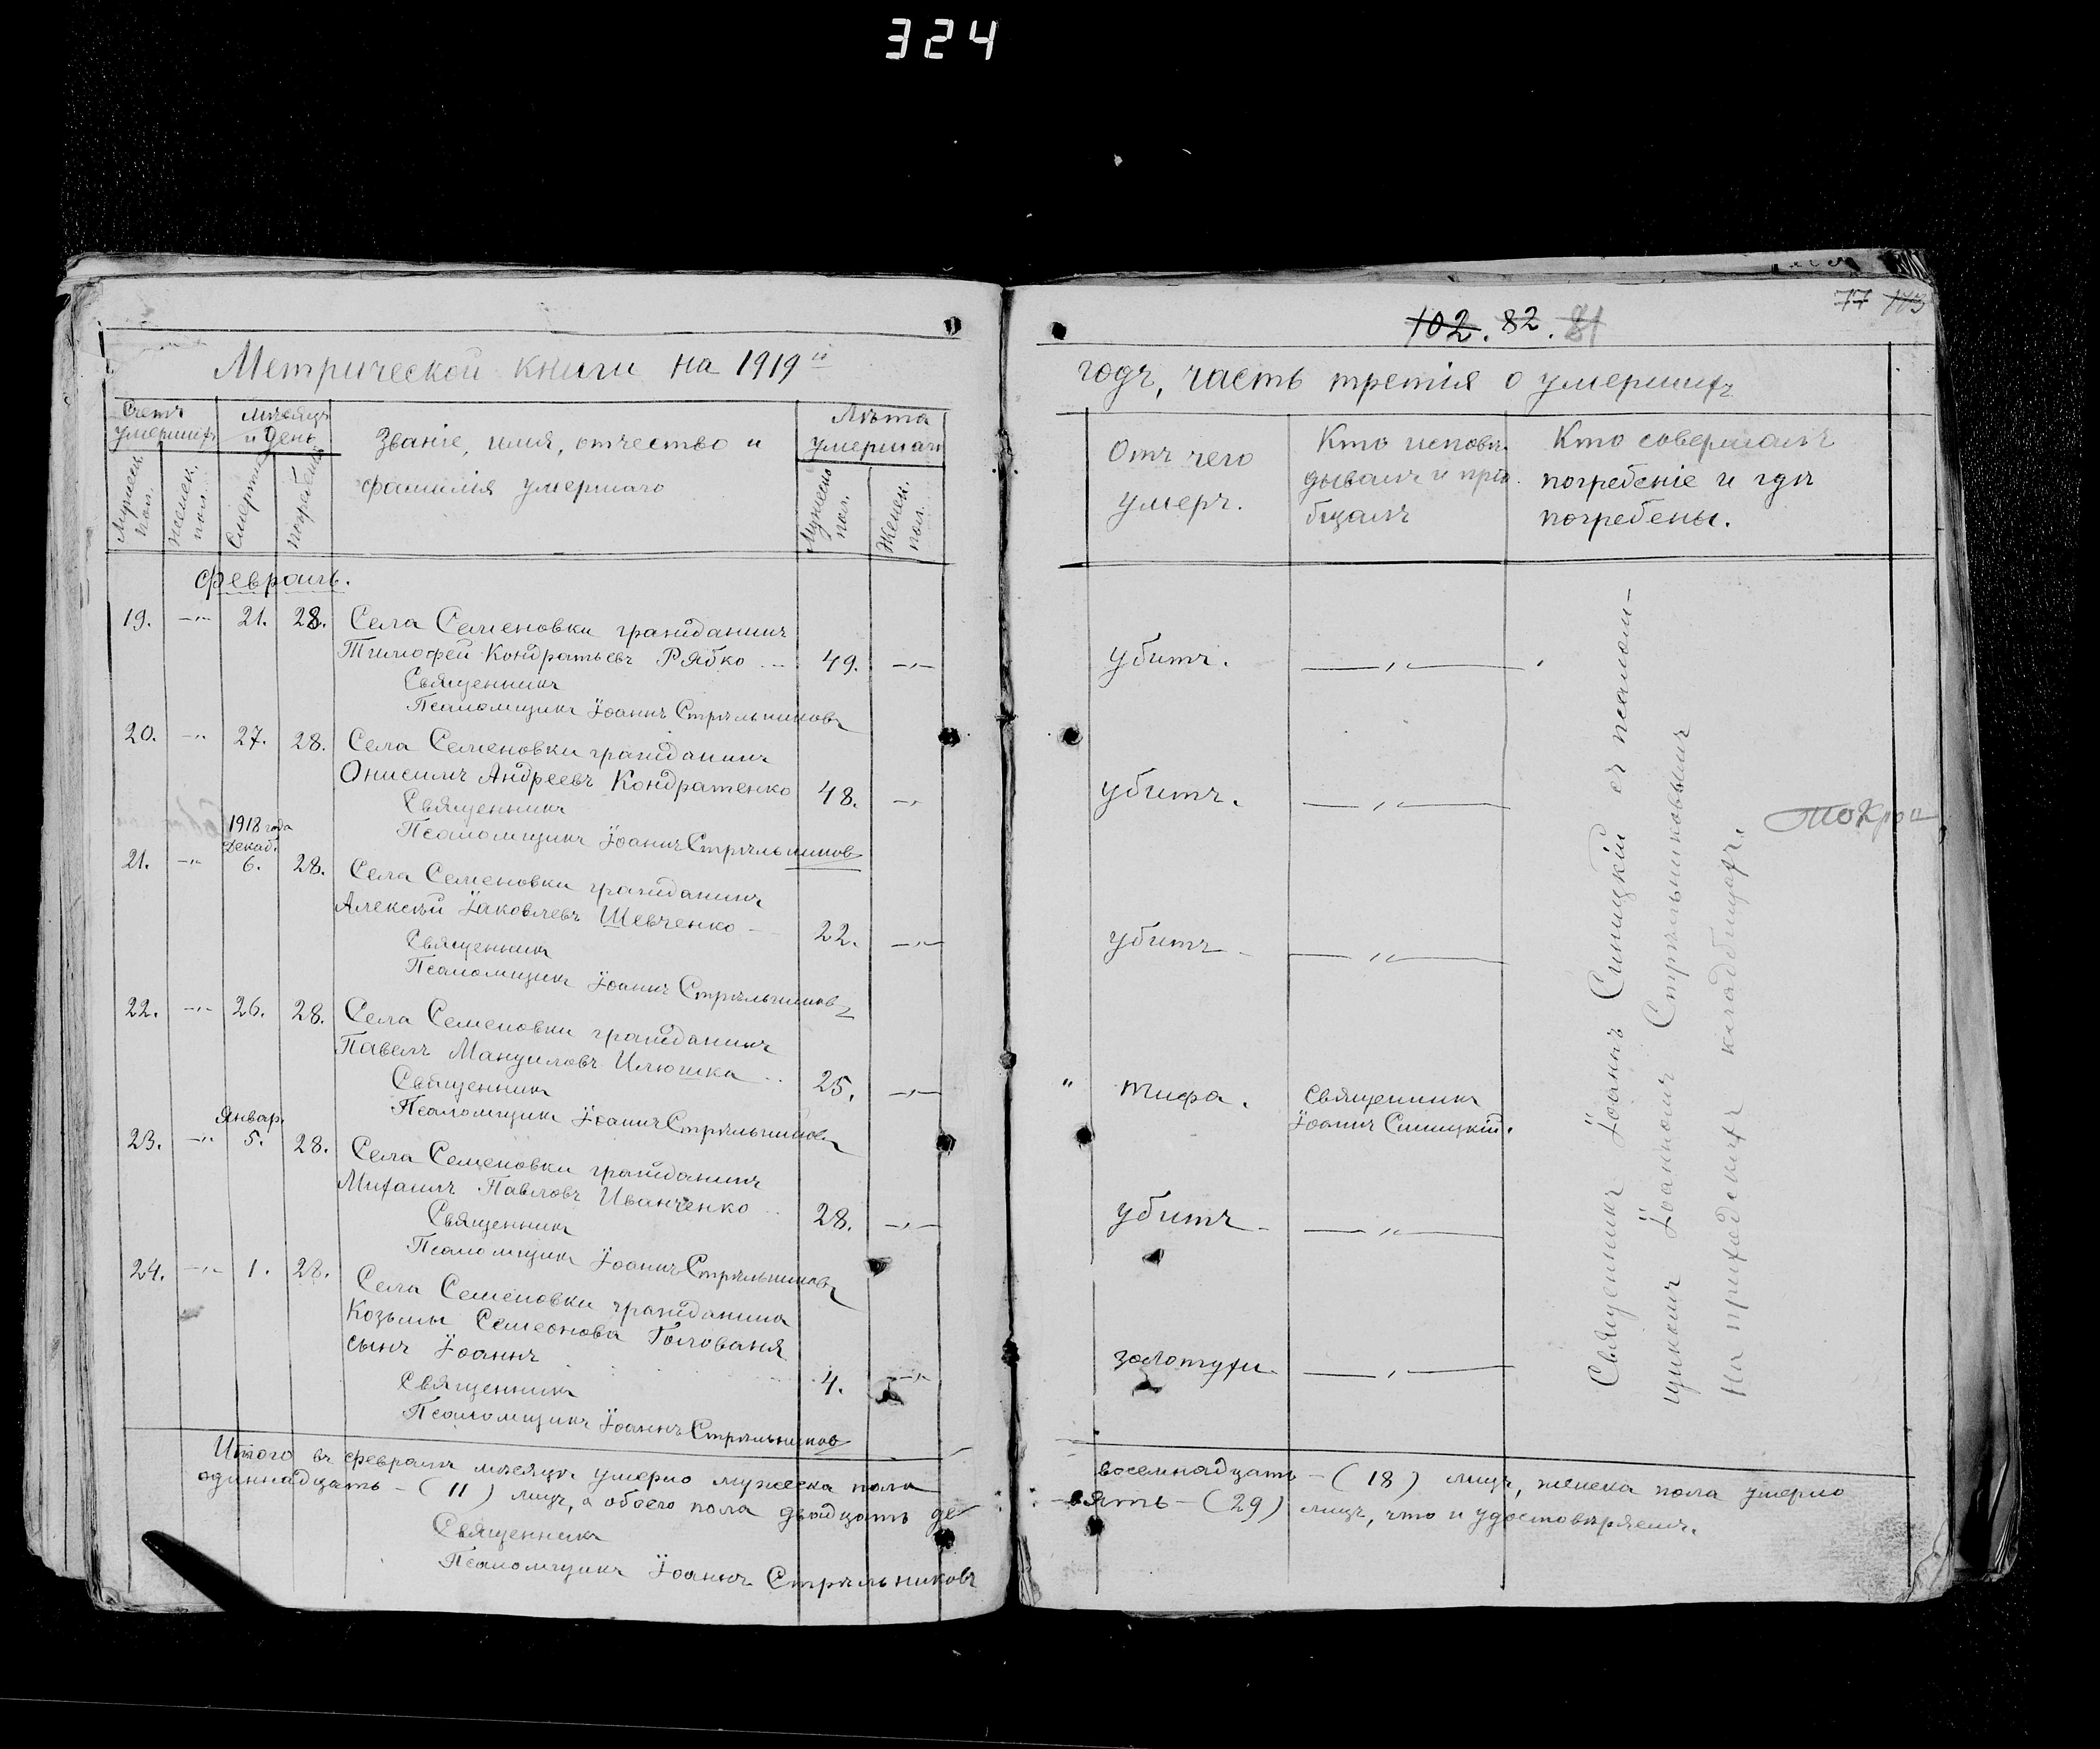 324
Метрической книги на 1919й
Счетъ умершихъ
Мужеск. пол.
Женск. пол.
Мѣсяцъ и день
Смерти
Погребенія
Званіе, имя, отчество и
фамилія умершаго
Лѣта умершаго
Мужеск. пол.
Женск. пол.
Февраль.
19. -„- 21. 28. Села Семеновки гражданинъ
Тимофей Кондратьевъ Рябко ... 49. -„-
Священникъ
Псаломщикъ Іоаннъ Стрѣльниковъ
20. -„- 27. 28. Села Семеновки гражданинъ
Онисимъ Андреевъ Кондратенко 48. -„-
Священникъ
Псаломщикъ Іоаннъ Стрѣльниковъ
1918 года
Декаб.
21. -„- 6. 28. Села Семеновки гражданинъ
Алексѣй Іаковлевъ Шевченко - 22. -„-
Священникъ
Псаломщикъ Іоаннъ Стрѣльниковъ
22. -„- 26. 28. Села Семеновки гражданинъ
Павелъ Мануиловъ Илюшка .. 25. -„-
Священникъ
Псаломщикъ Іоаннъ Стрѣльниковъ
Январ.
23. -„- 5. 28. Села Семеновки гражданинъ
Михаилъ Павловъ Иванченко .. 28. -„-
Священникъ
Псаломщикъ Іоаннъ Стрѣльниковъ
24. -„- 1. 28. Села Семеновки гражданина
Козьмы Семеонова Голованя
сынъ Іоаннъ 4. -„-
Священникъ
Псаломщикъ Іоаннъ Стрѣльниковъ
Итого въ февралѣ мѣсяцѣ умерло мужеска пола
одиннадцать - (11) лицъ, а обоего пола двадцать де
Священникъ
Псаломщикъ Іоаннъ Стрѣльниковъ
77 173
102. 82. 81
годъ, часть третія о умершихъ
Отъ чего
умеръ.
Кто исповѣ-
дывалъ и прі-
бщалъ
Кто совершалъ
погребеніе и гдѣ
погребены.
убитъ. -„-
убитъ. -„-
убитъ -„-
" тифа. Священникъ
Іоаннъ Синицкій.
убитъ -„-
золотухи. -„-
Священникъ Іоаннъ Синицкій съ псалом-
щикомъ Іоанномъ Стрѣльниковымъ
На приходскихъ кладбищахъ.
восемнадцать - (18) лицъ, женска пола умерло
вять - (29) лицъ, что и удостовѣряемъ.